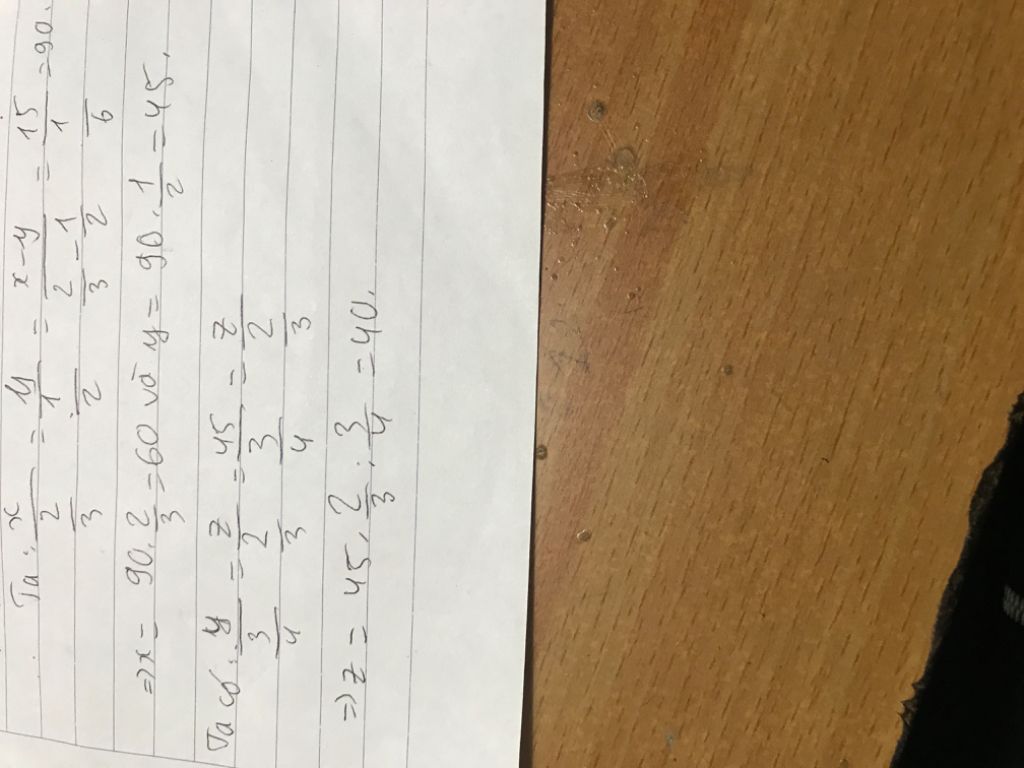 Ta : x/(2/3) = y/(1/2) = (x-y)/(2/3 - 1/2) = 15/(1/6) = 90.
=> x = 90 . 2/3 = 60 và y = 90 . 1/2 = 45.
Ta có : y/(3/4) = z/(2/3) = 45/(3/4) = z/(2/3)
=> z = 45 . 2/3 : 3/4 = 40.